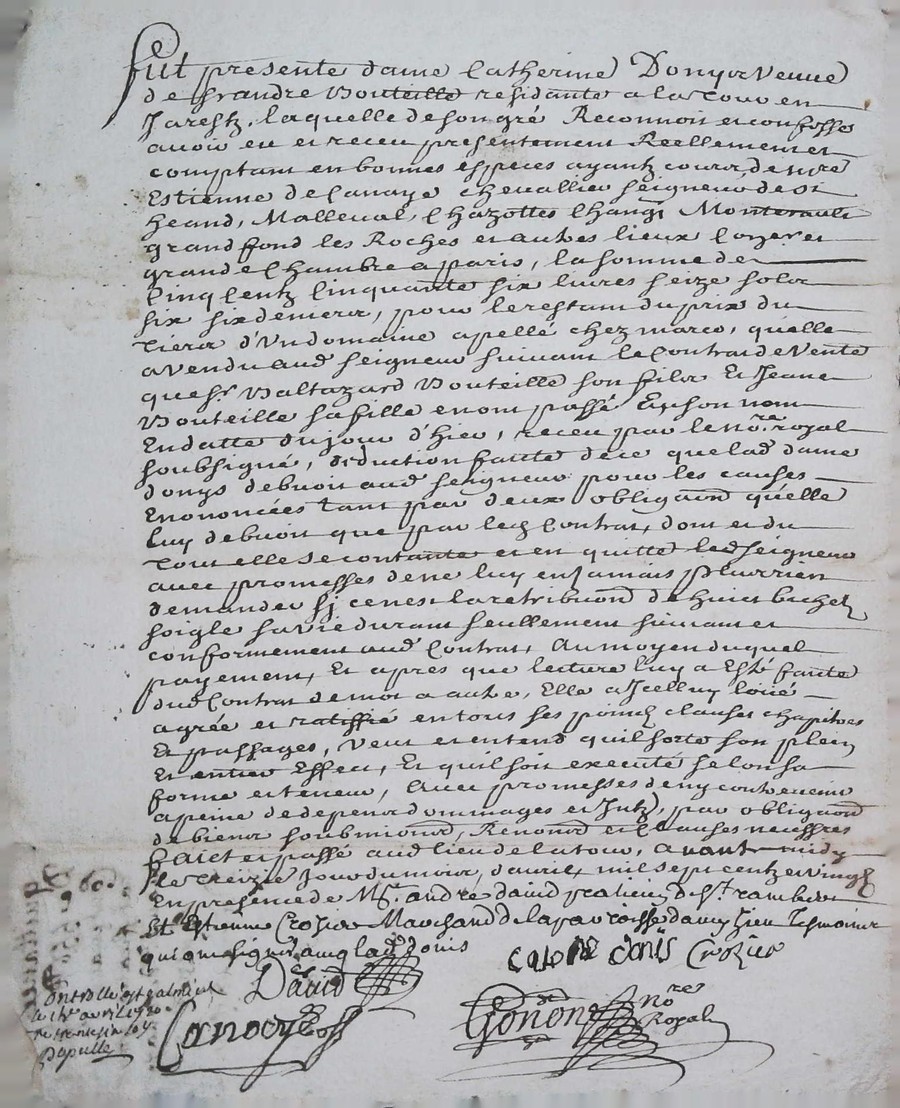 fut presente dame Catherine Donys Veuve
de sr andre Bouteille residante a la Tour en
Jarestz, laquelle de son gré Reconnoit et confesse
avoir eu et receu presentement Reellement et
comptant en bonnes especes ayantz cours, de mre
Estienne de Canaye chevallier seigneur de st
heand, Malleval, Chazottes Changi Monterault
grand fond les Roches et autres lieux Coner en
grande Chambre a paris, la somme de
Cinq Centz Cinquante six livres seize solz
six deniers, pour le restant du prix du
Tierz d'un domaine apellé chez marco, quelle
a vendu aud seigneur suivant le Contrat de Vente
que sr Baltazard Bouteille son filz Et Jeane
Bouteille sa fille en ont passé En son nom
En datte du jour d'hier, receu par le nore royal
soubsigné, deduction faitte de ce que lad dame
donys debvoit aud seigneur pour les causes
Enoncées tant par deux obligaons qu'elle
luy debvoit que par led Contrat, dont et du
Tout elle se contante et en quitte led seigneur
avec promesses de ne luy en Jamais plus rien
demander si ce n'est la retribuon de huict bichetz
soigle sa vie durant seullement suivant et
conformement aud Contrat, Au moyen duquel
payement, Et apres que lecture luy a Esté faitte
dud Contrat de mot a autre, Elle a Icelluy loüé
agrée et ratiffié en tous ses pointz clauses chapitres
Et passages, veut et entend qu'il sorte son plein
Et entier Effect, Et qu'il soit executé selon sa
forme et teneur, Avec promesses de n'y contrevenir
a peine de depens dommages et Intz, par obligaon
de biens soubmions, Renons et clauses necessres
faict et passé aud lieu de la tour, avant midy
le treizie Jour du mois d'avril, mil sept centz Vingt
En presence de Mr andre david praticien de st rambert
Et Etienne Crozier Marchand de la parroisse dud lieu Tesmoins
qui ont signé avec lad donis
caterine donis Crozier
David
Canaye
Gonon nore Royal
Controllé et galmier
le avril 1720